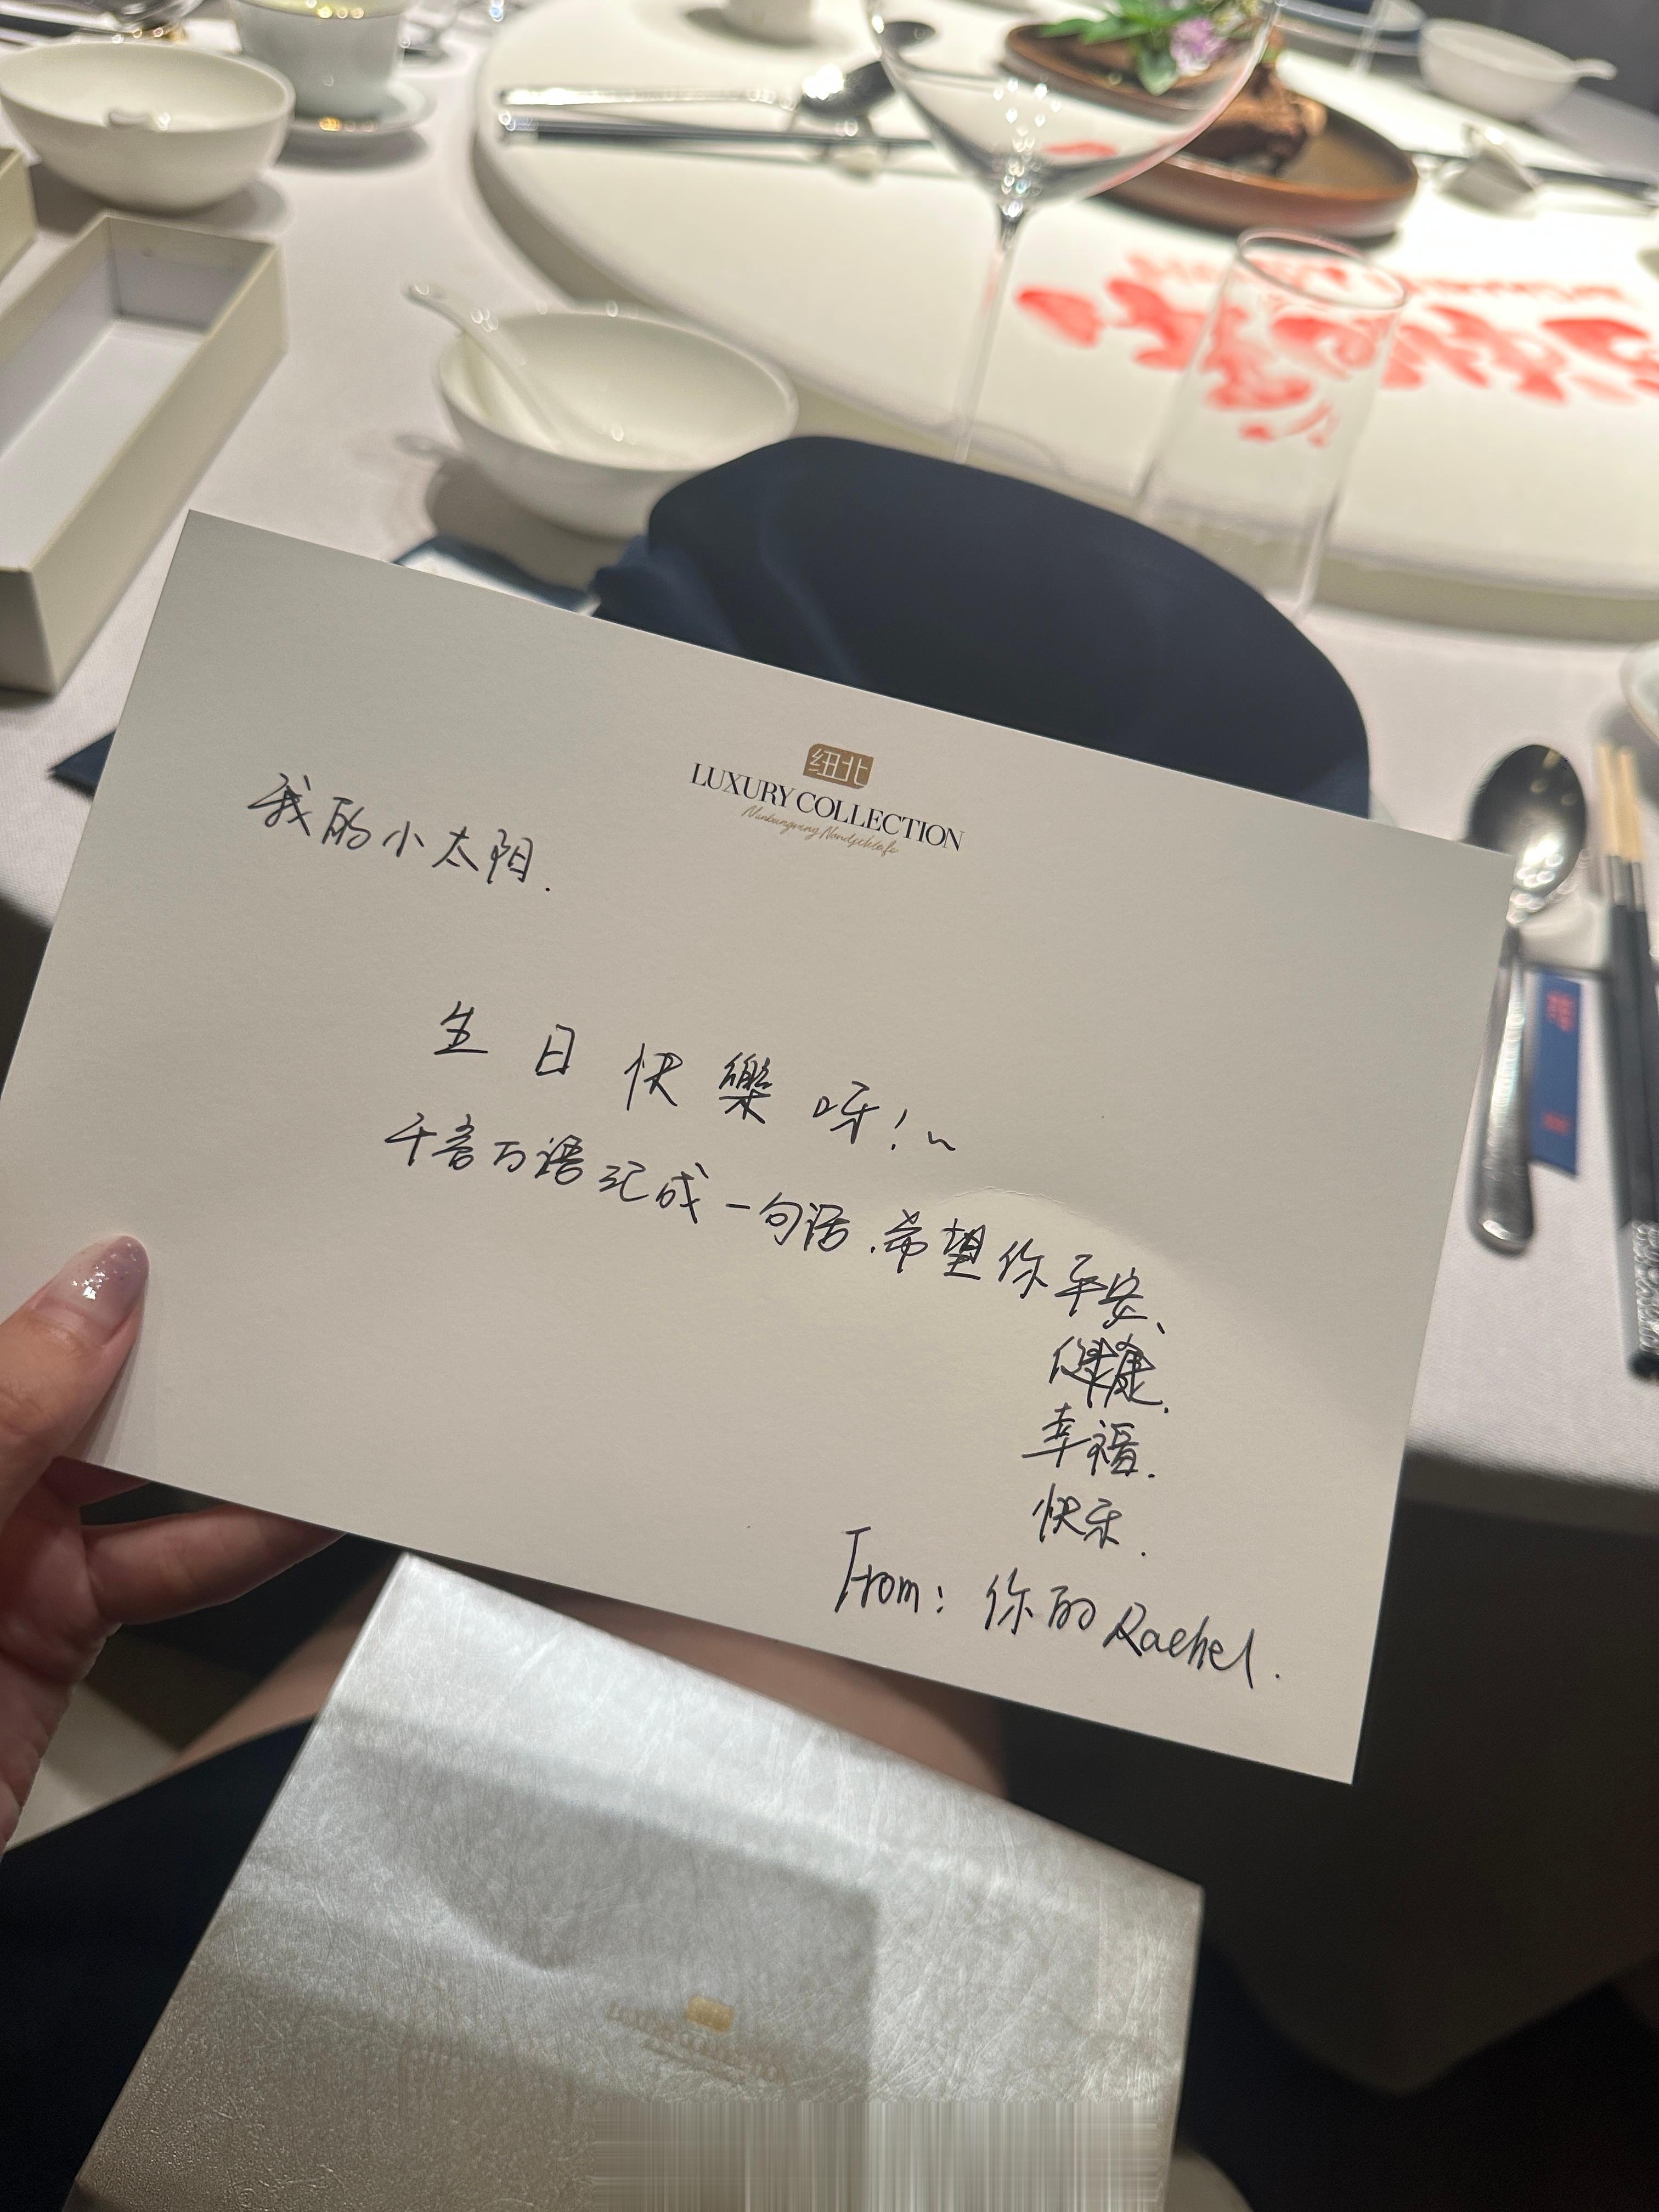 纽北
LUXURY COLLECTION
我的小太阳.
生日快樂呀!~
千言万语汇成一句话.希望你平安、
健康.
幸福.
快乐.
From: 你的Rachel.